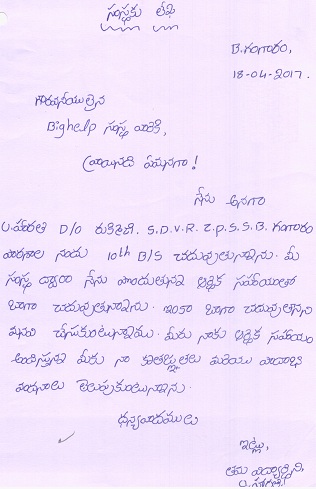 సంస్థకు లేఖ
B.గంగారం,
18-04-2017.
గౌరవనీయులైన
Bighelp సంస్థ వారికి,
వ్రాయునది ఏమనగా!
నేను అనగా
U.హారతి D/O రుకిశెట్టి. S.D.V.R. Z.P.S.S. B.గంగారం
పాఠశాల నందు 10th B/S చదువుతున్నాను. మీ
సంస్థ ద్వారా నేను పొందుతున్న ఆర్థిక సహాయంతో
బాగా చదువుతున్నాను. ఇంకా బాగా చదువుతానని
మనవి చేసుకుంటున్నాము. మీరు నాకు ఆర్థిక సహాయం
అందిస్తున్న మీకు నా కృతజ్ఞతలు మరియు పాదాభి
వందనాలు తెలుపుకుంటున్నాను.
ధన్యవాదములు
ఇట్లు,
తమ విద్యార్థిని,
U.హారతి.